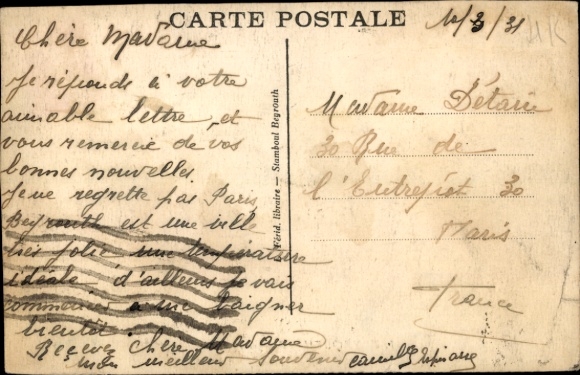 CARTE POSTALE
10/3/31
Chère Madame
Je réponds à votre
aimable lettre, et
vous remercie de vos
bonnes nouvelles
Je ne regrette pas Paris,
Beyrouth est une ville
très jolie une température
idéale d'ailleurs je vais
commencer à me baigner
bientôt.
Recevez chère Madame
mon meilleur souvenir
Camille
Férid, libraire — Stamboul Beyrouth
Madame Détarie
30 Rue de
l'Entrepôt 30
Paris
France